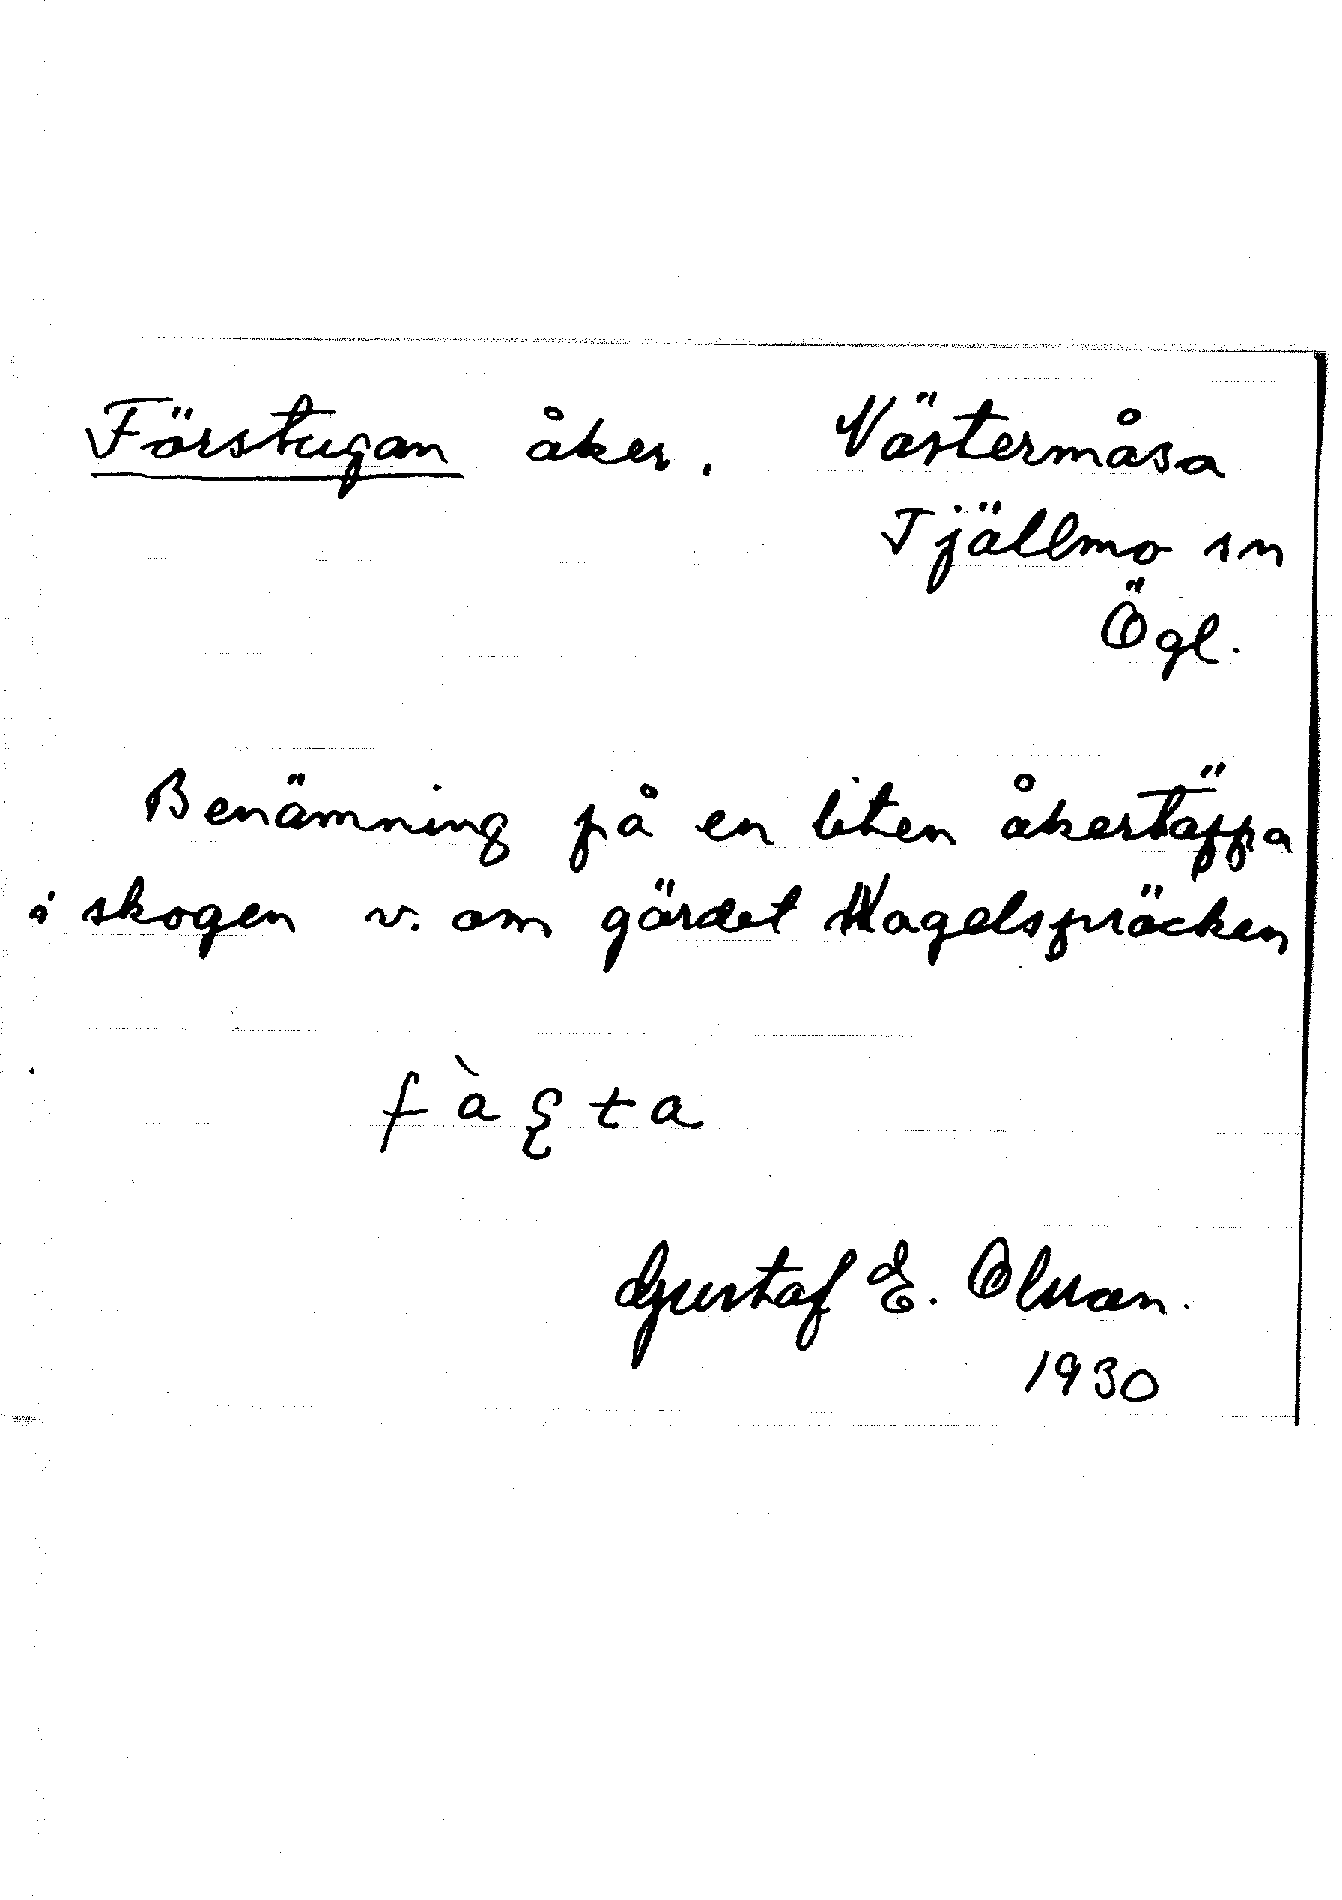 Förstugan åker. Västermåsa
Tjällmo sn
Ögl.
Benämning på en liten åkertäppa
i skogen v. om gärdet Wagelspräcken
Gustaf E. Olsson.
1930